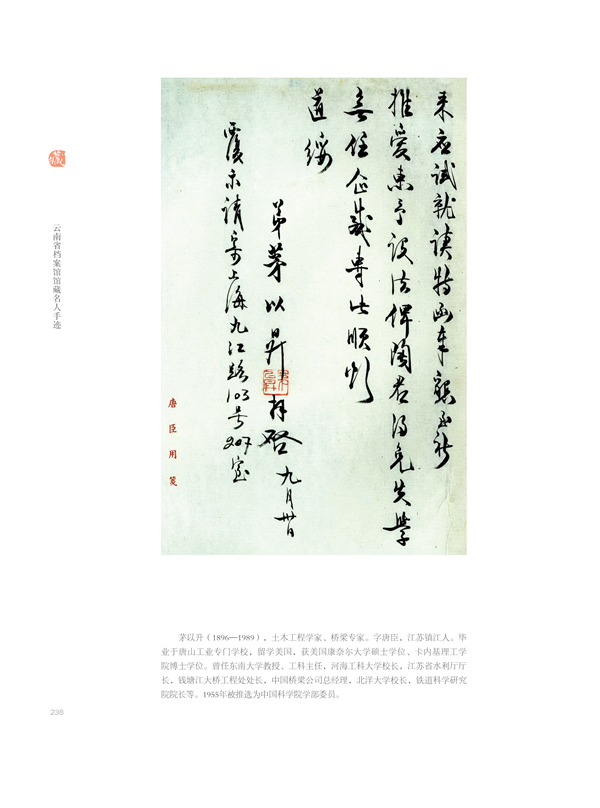 来應試就讀特函奉懇至祈
推愛惠予設法俾君得免失學
無任企感專此順頌
道綏
弟茅以昇拜啓 九月卅日
覆示請寄上海九江路103号207室
唐臣用箋
藏
云南省档案馆馆藏名人手迹
茅以升（1896—1989），土木工程学家、桥梁专家。字唐臣，江苏镇江人。毕
业于唐山工业专门学校，留学美国，获美国康奈尔大学硕士学位、卡内基理工学
院博士学位。曾任东南大学教授、工科主任，河海工科大学校长，江苏省水利厅厅
长，钱塘江大桥工程处处长，中国桥梁公司总经理，北洋大学校长，铁道科学研究
院院长等。1955年被推选为中国科学院学部委员。
238